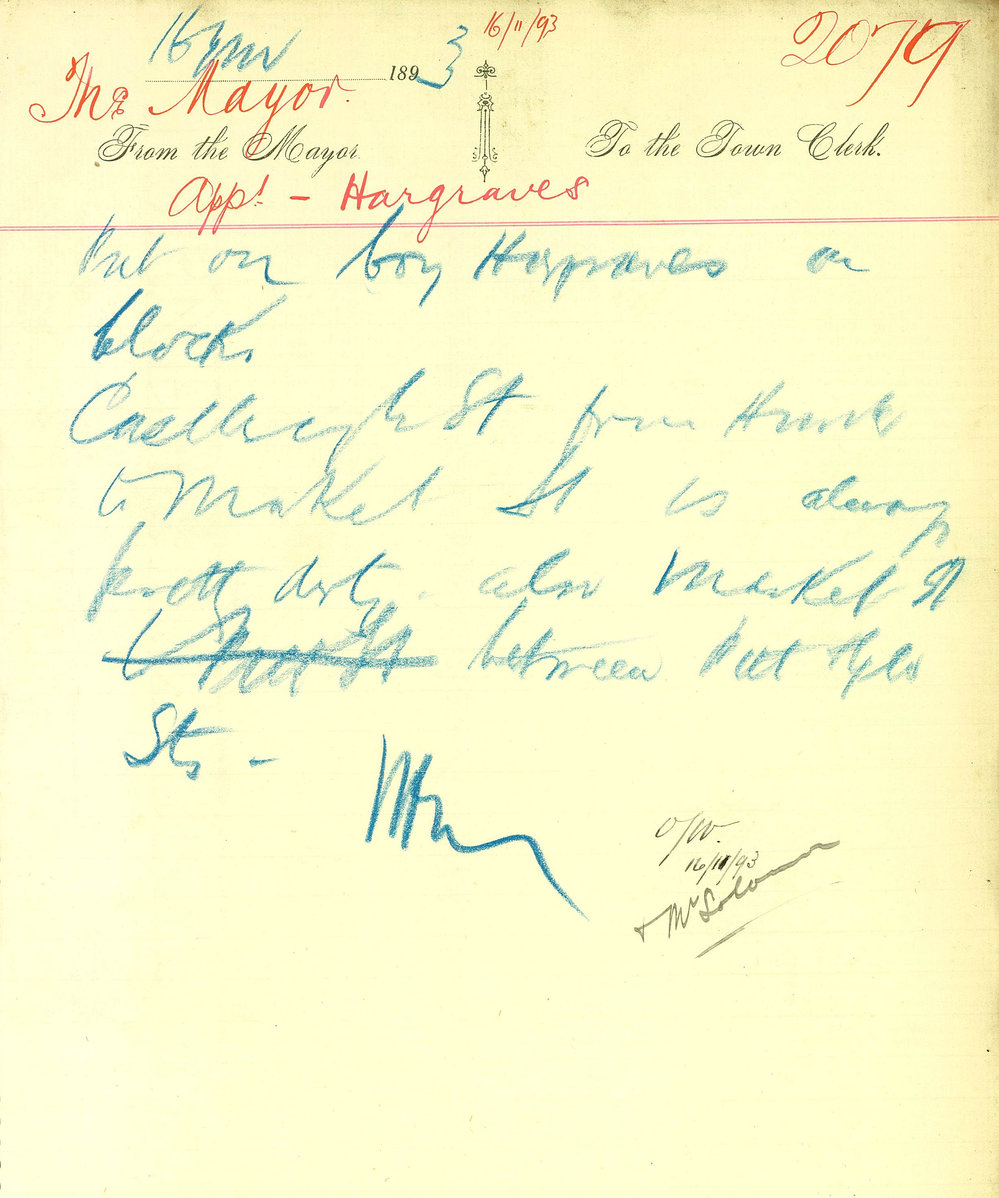 16 Nov 1893
16/11/93
2079
The Mayor.
From the Mayor
To the Town Clerk.
Appt - Hargraves
Put on boy Hargraves on
block.
Castlereagh St from Hunter
to Market St is always
pretty dirty - also Market St
to Pitt St between Pitt &
Sts -
O/W.
16/11/93
+ Mr Solomon